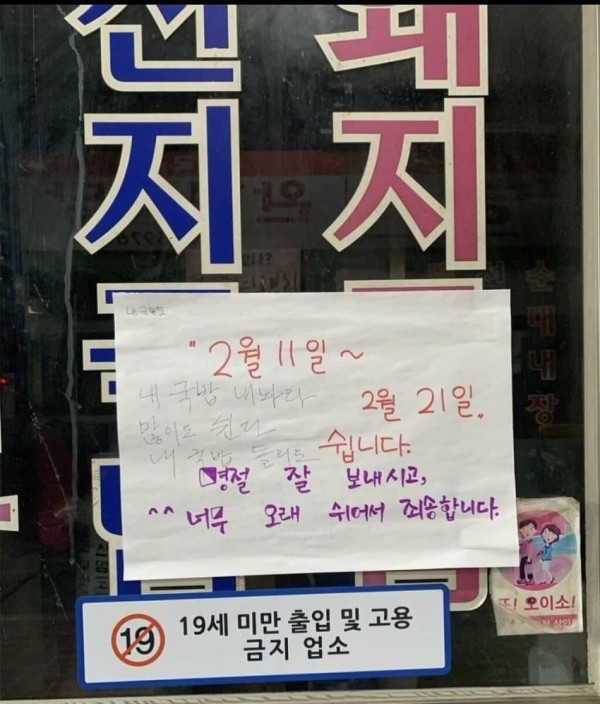 선지국
돼지국
내 국밥도
"2월 11일 ~
내 국밥 내놔라
2월 21일"
많이도 쉰다
쉽니다.
내 국밥 돌리도
명절 잘 보내시고,
^^ 너무 오래 쉬어서 죄송합니다.
순대내장
또! 오이소!
19
19세 미만 출입 및 고용
금지 업소